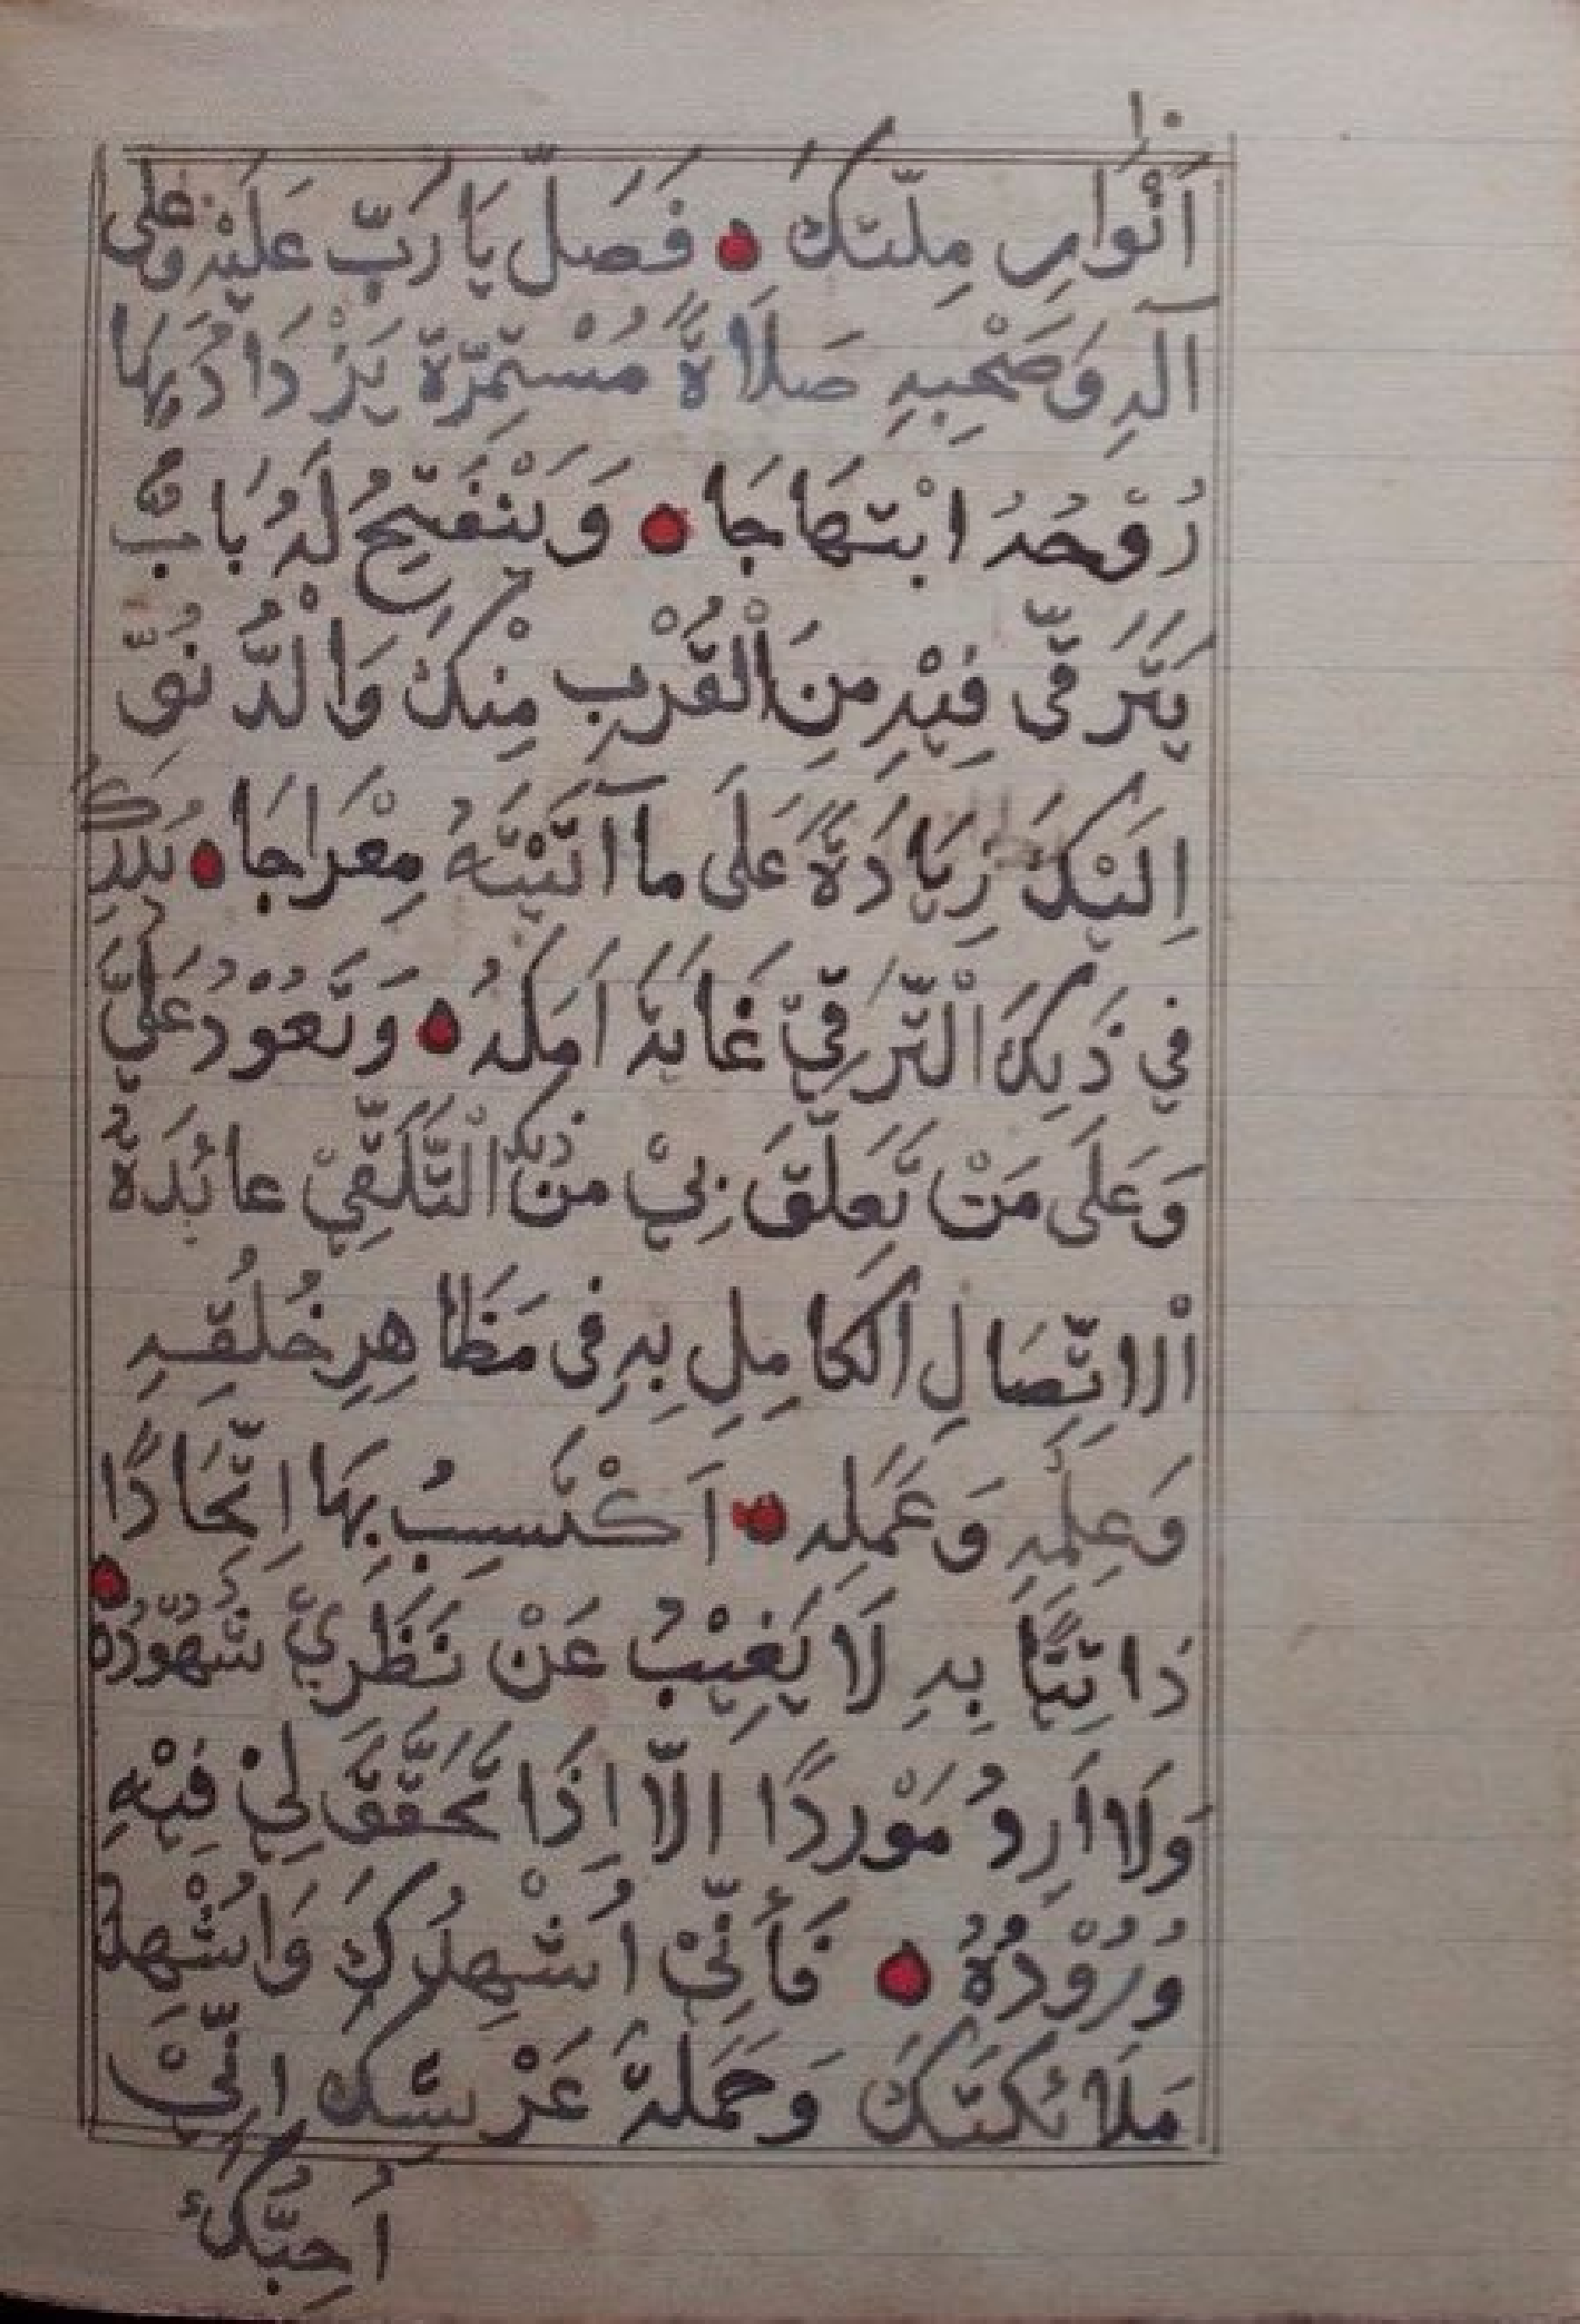 اَنْوَارِ مِلَّتِكَ فَصَلِّ يَا رَبِّ عَلَيْهِ وَعَلَى
آلِهِ وَصَحْبِهِ صَلَاةً مُسْتَمِرَّةً يَزْدَادُ بِهَا
رُوْحُهُ ابْتِهَاجَا وَيَنْفَتِحُ لَهُ بَابٌ
يَتَرَقَّى فِيْهِ مِنَ الْقُرْبِ مِنْكَ وَالدُّنُوِّ
اِلَيْكَ زِيَادَةً عَلَى مَا آتَيْتَهُ مِعْرَاجَا يُدْرِكُ
فِي ذَلِكَ الْتَّرَقِّيْ غَايَةَ اَمَلِهُ وَتَعُوْدُ عَلَيَّ
وَعَلَى مَنْ تَعَلَّقَ بِيْ مِنْ ذَلِكَ الْتَّلَقِّيْ عَائِدَةٌ
اْلاِتِّصَالِ الْكَامِلِ بِهِ فِى مَظَاهِرِ خُلُقِهِ
وَعِلْمِهِ وَعَمَلِهِ اَكْتَسِبُ بِهَا اِتِّحَادًا
ذَاتِيًّا بِهِ لَا يَغِيْبُ عَنْ نَظَرِيْ شُهُوْدُهُ
وَلَا اَرِدُ مَوْرِدًا اِلَّا اِذَا تَحَقَّقَ لِيْ فِيْهِ
وُرُوْدُهُ فَأَنِّيْ اُشْهِدُكَ وَاُشْهِدُ
مَلَائِكَتَكَ وَحَمَلَةَ عَرْشِكَ اِنِّيْ
اُحِبُّكَ